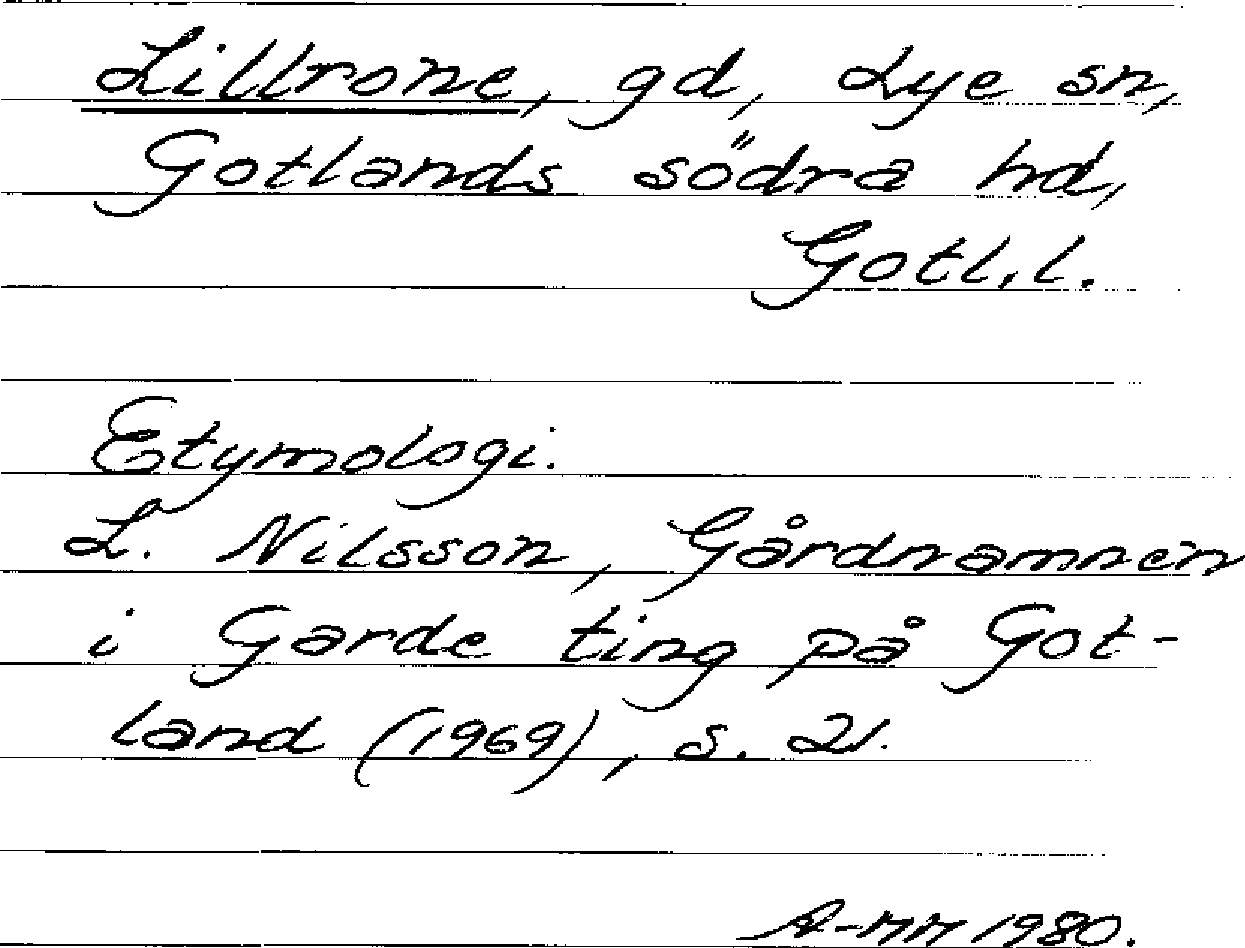 Lillrone, gd, Lye sn,
Gotlands södra hd,
Gotl.l.
Etymologi.
L. Nilsson, Gårdnamnen
i Garde ting på Got-
land (1969), s. 21.
A-MM 1980.